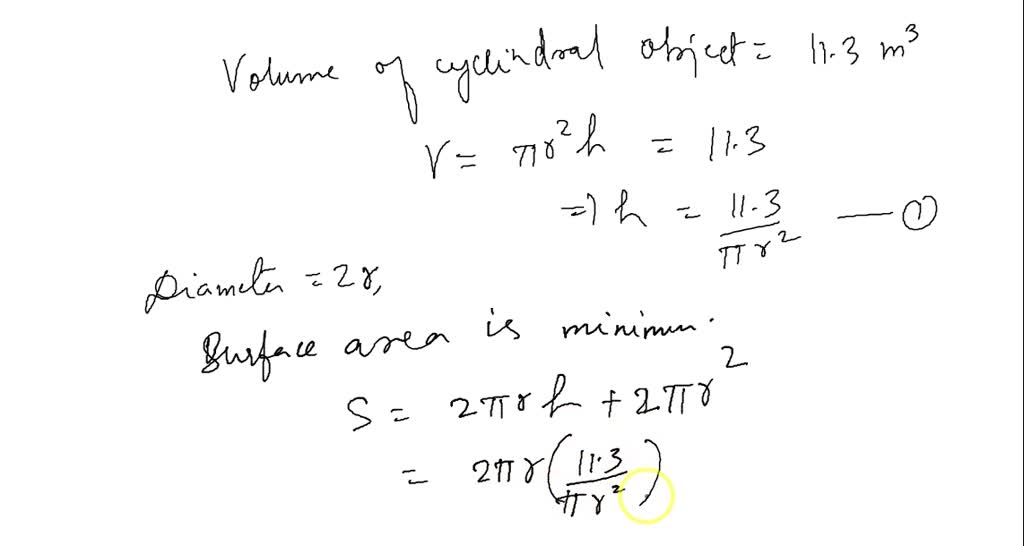 Volume of cyclindral object = 11.3 m³
V = πr²h = 11.3
=> h = 11.3/πr² — ①
Diameter = 2r,
Surface area is minimum.
S = 2πrh + 2πr²
= 2πr(11.3/πr²)